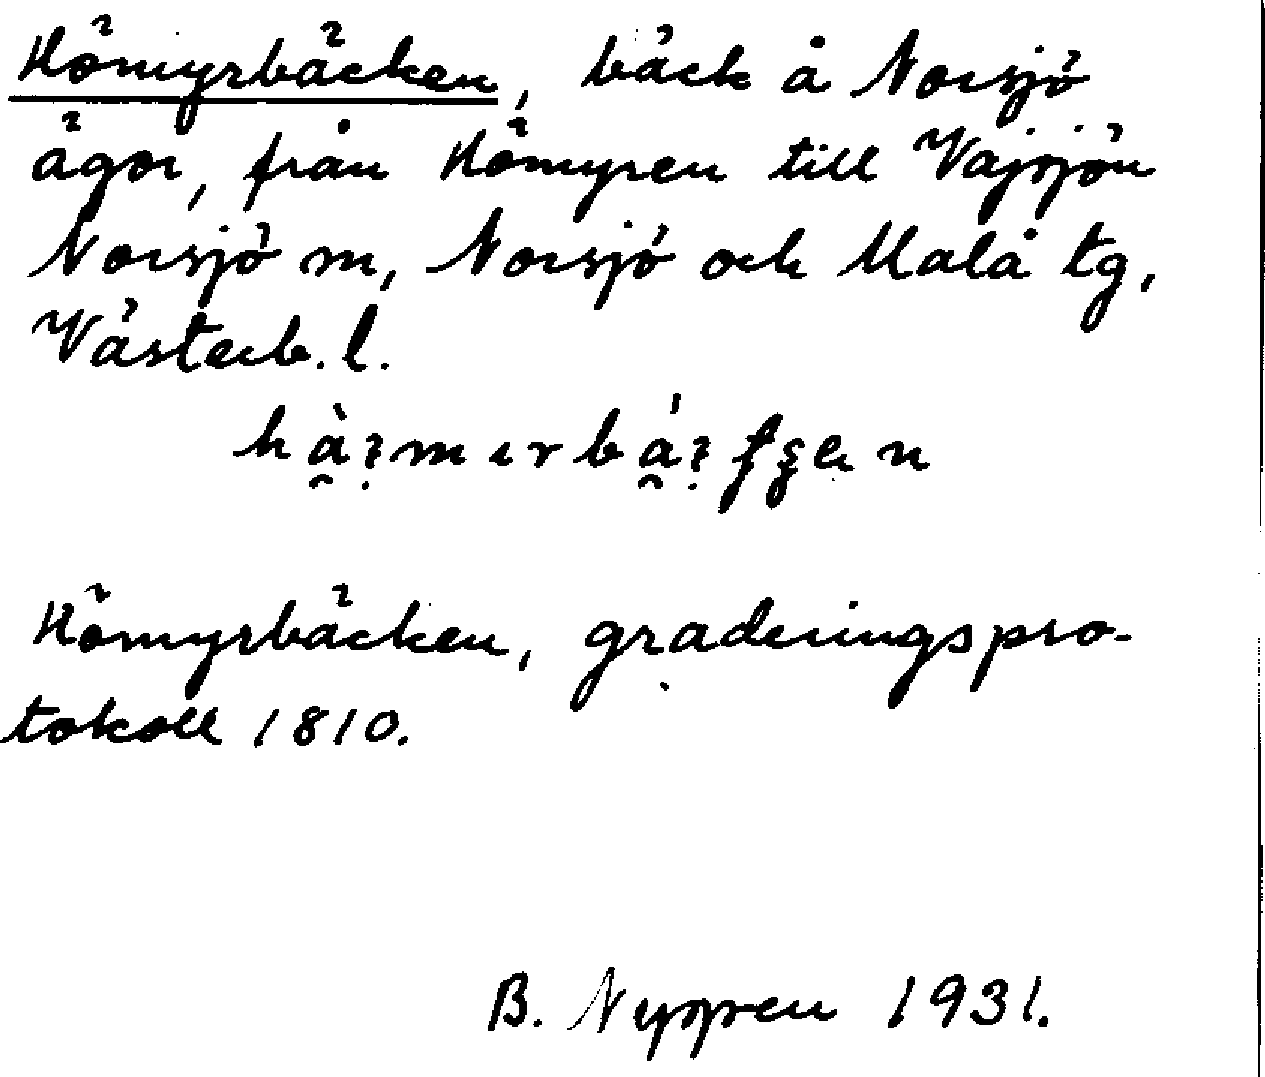 Hömyrbäcken, bäck å Norsjö
ägor, från Hömyren till Vajsjön
Norsjö sn, Norsjö och Malå tg,
Västerb. l.
Hömyrbäcken, graderingspro-
tokoll 1810.
B. 1931.